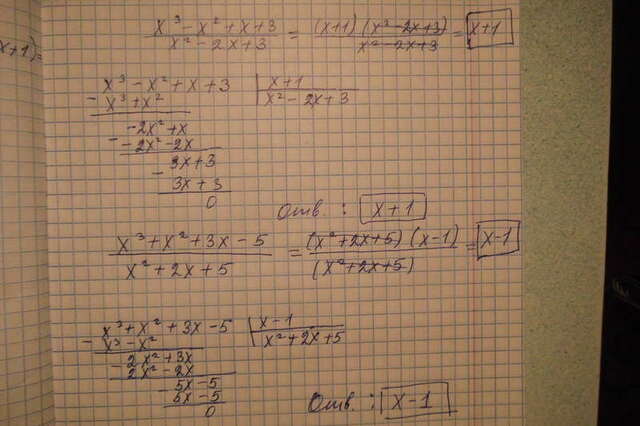 x+1)=
(x³ - x² + x + 3)/(x² - 2x + 3) = (x+1)(x² - 2x + 3)/(x² - 2x + 3) = x+1
x³ - x² + x + 3 | x+1
- x³ + x² | x² - 2x + 3
-2x² + x
- -2x² - 2x
3x + 3
- 3x + 3
0
Отв. : x+1
(x³ + x² + 3x - 5)/(x² + 2x + 5) = (x² + 2x + 5)(x - 1)/(x² + 2x + 5) = x-1
x³ + x² + 3x - 5 | x - 1
- x³ - x² | x² + 2x + 5
2x² + 3x
- 2x² - 2x
5x - 5
- 5x - 5
0
Отв. : x-1